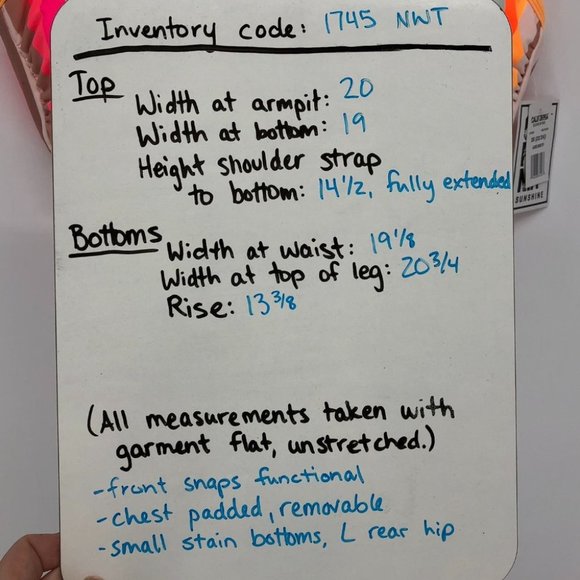 Inventory code: 1745 NWT
Top
Width at armpit: 20
Width at bottom: 19
Height shoulder strap
to bottom: 14 1/2, fully extended
Bottoms
Width at waist: 19 1/8
Width at top of leg: 20 3/4
Rise: 13 3/8
(All measurements taken with
garment flat, unstretched.)
-front snaps functional
-chest padded, removable
-small stain bottoms, L rear hip
CALIFORNIA
SUNSHINE